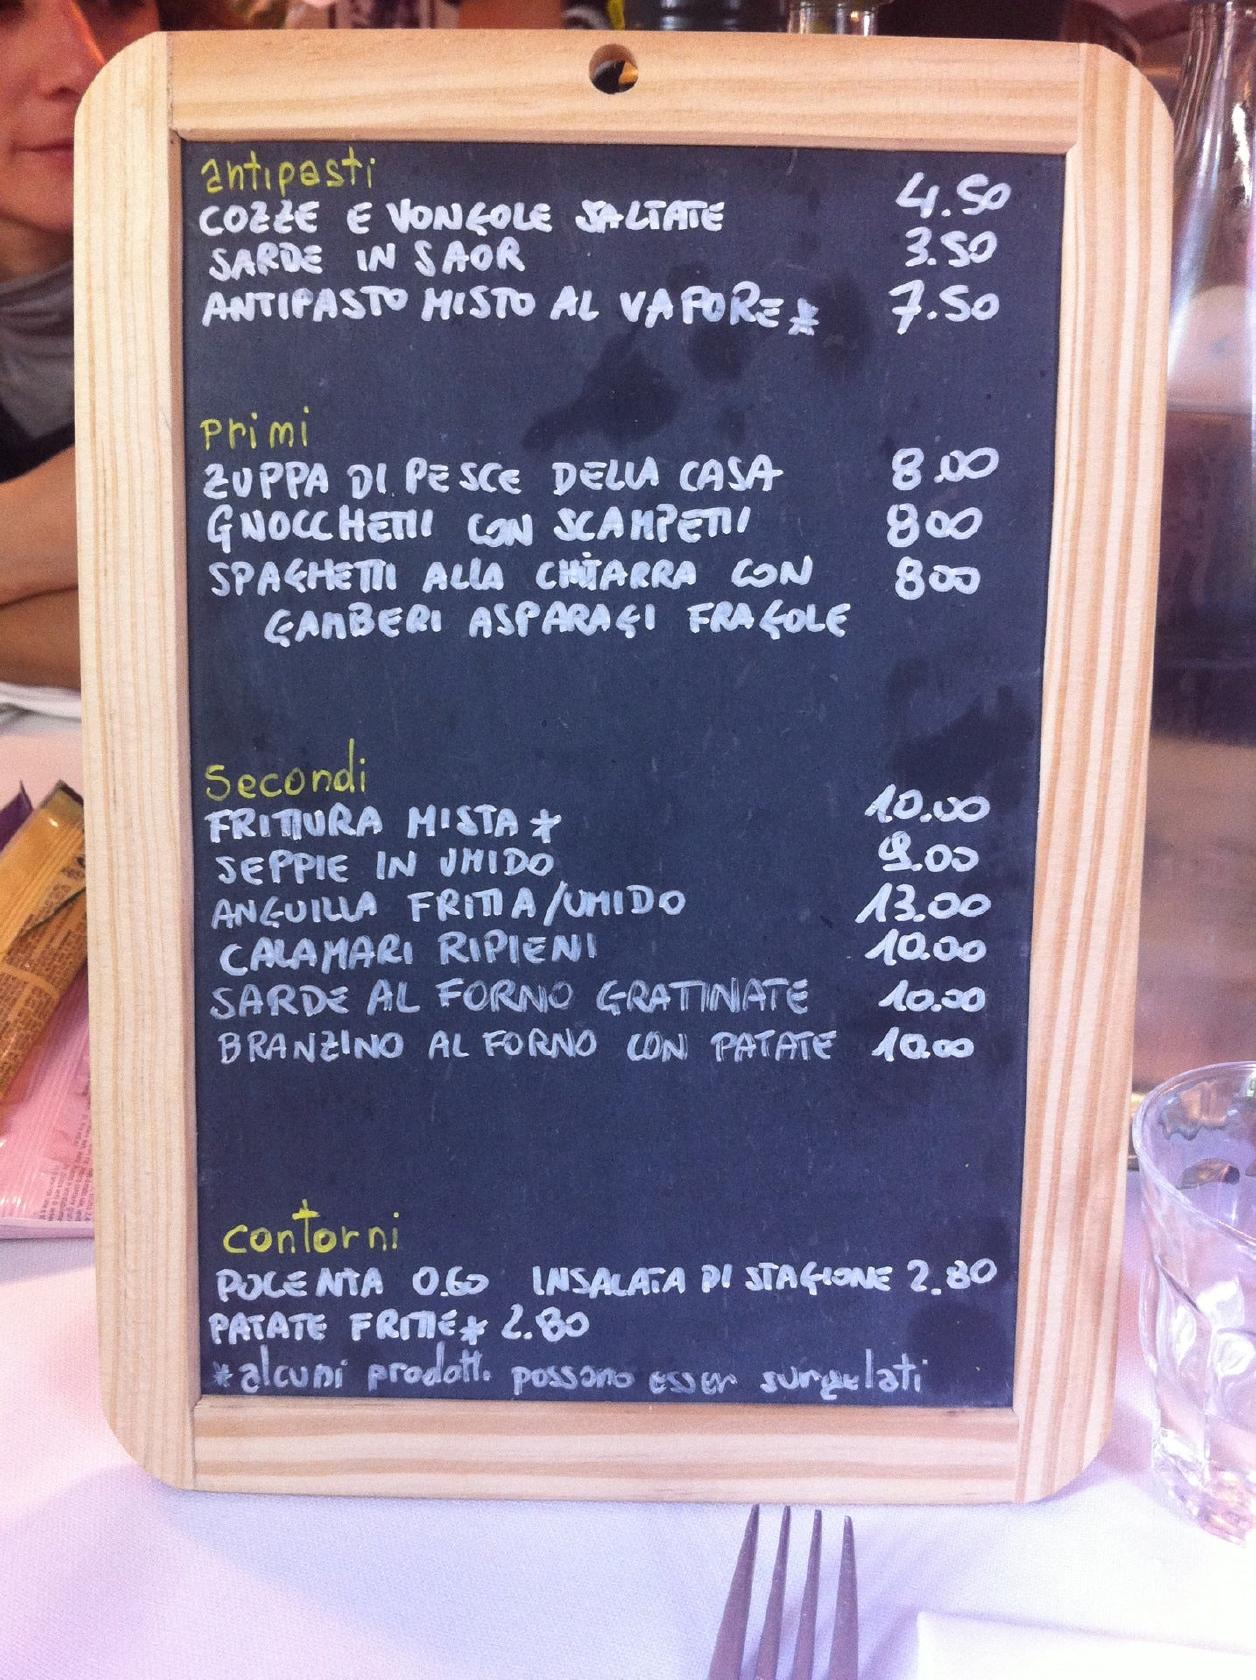 antipasti
COZZE E VONGOLE SALTATE 4.50
SARDE IN SAOR 3.50
ANTIPASTO MISTO AL VAPORE* 7.50
Primi
ZUPPA DI PESCE DELLA CASA 8.00
GNOCCHETTI CON SCAMPETTI 800
SPAGHETTI ALLA CHITARRA CON 800
GAMBERI ASPARAGI FRAGOLE
Secondi
FRITTURA MISTA* 10.00
SEPPIE IN UMIDO 9.00
ANGUILLA FRITTA/UMIDO 13.00
CALAMARI RIPIENI 10.00
SARDE AL FORNO GRATINATE 10.00
BRANZINO AL FORNO CON PATATE 10.00
contorni
POLENTA 0.60 INSALATA DI STAGIONE 2.80
PATATE FRITTE* 2.80
*alcuni prodotti possono esser surgelati